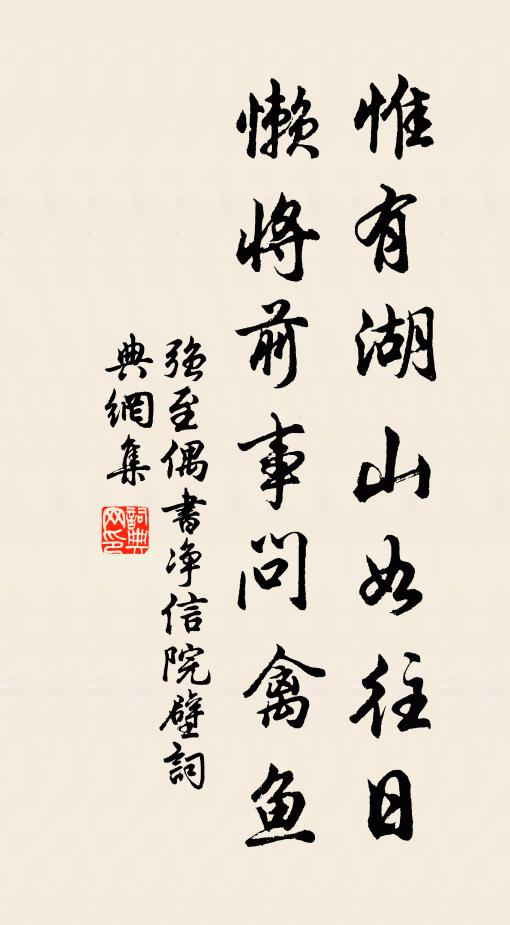 惟有湖山如往日
懒将前事问禽鱼
强至偶书净信院壁词
典網集
詞典
网印